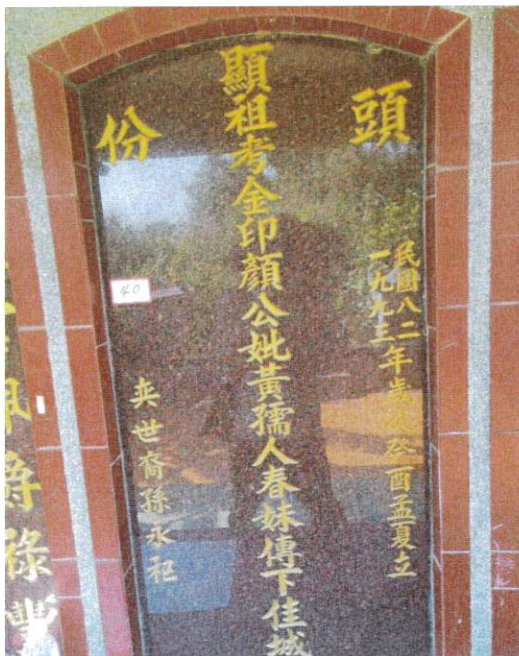 頭份
民國八二
一九九三年歲次癸酉孟夏立
顯祖考金印顏公妣黃孺人春妹傳下佳城
奕世裔孫永祀
40
爵祿豐